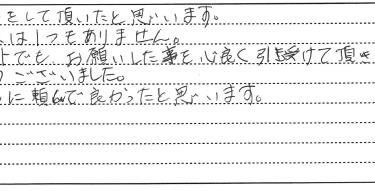 をして頂いたと思います。
は1つもありません。
でも、お願いした事を心良く引き受けて頂き
ございました。
に頼んで良かったと思います。